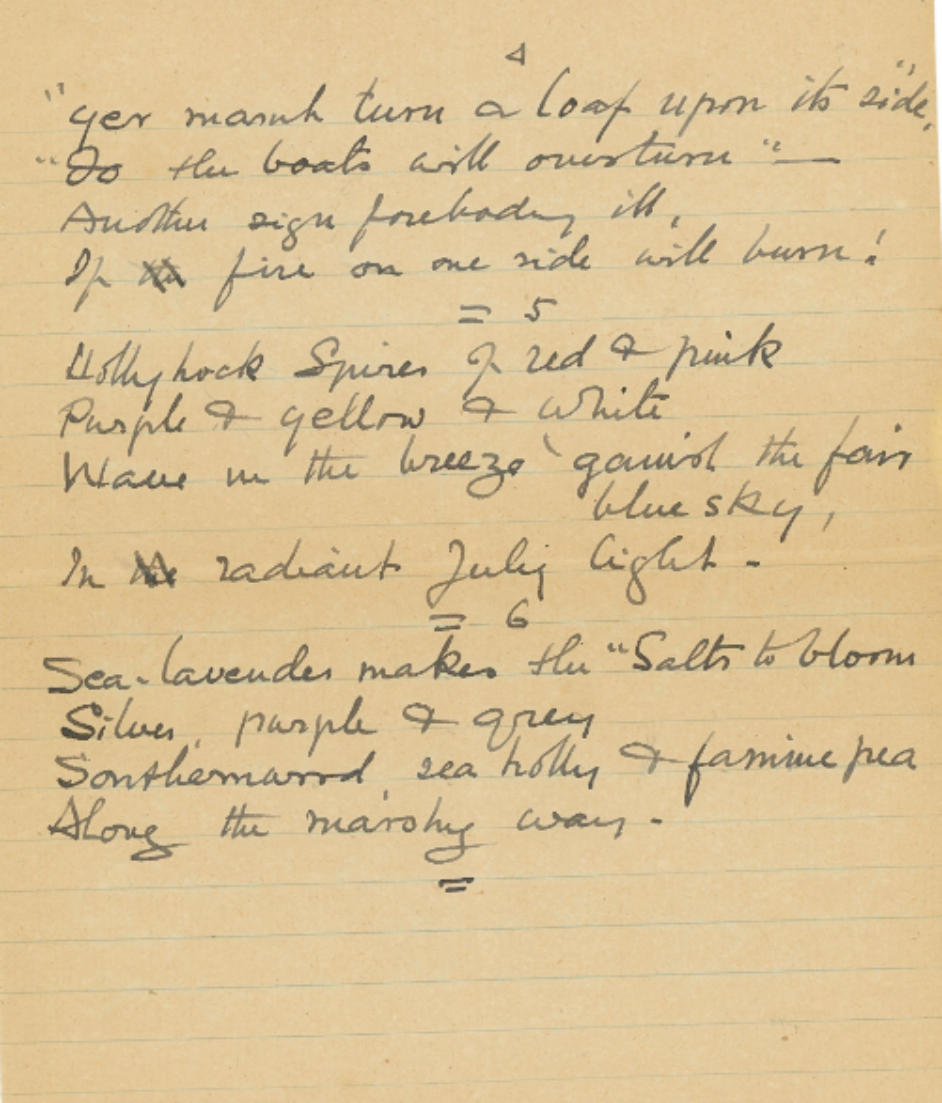 4
"yer marnt turn a loaf upon its side,"
"Do the boats will overturn" —
Another sign foreboding ill,
If fire on one side will burn!
= 5
Hollyhock Spires of red & pink
Purple & yellow & white
Wave in the breeze 'gainst the fair
blue sky,
In radiant July light -
= 6
Sea-lavender makes the "Salts to bloom
Silver, purple & grey
Southernwood, sea holly & famine pea
Along the marshy way -
=